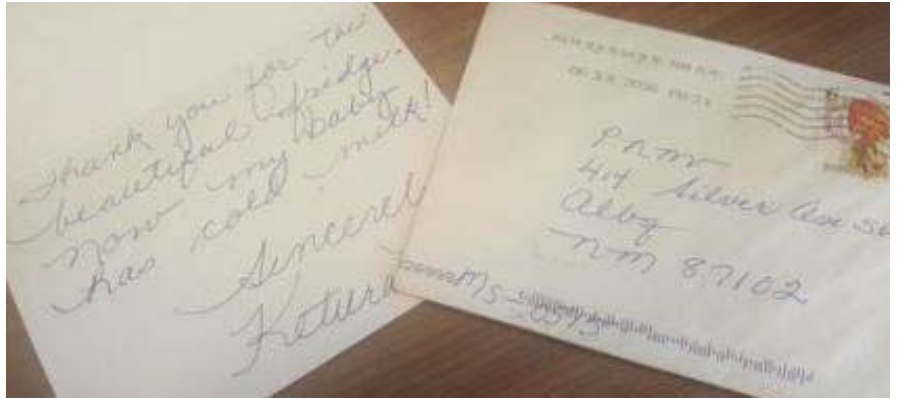 Thank you for the
beautiful fridge.
now my baby
has cold milk!
Sincerel
Ketura
PNM
414 Silver Ave. S
Albq
NM 87102
MS-